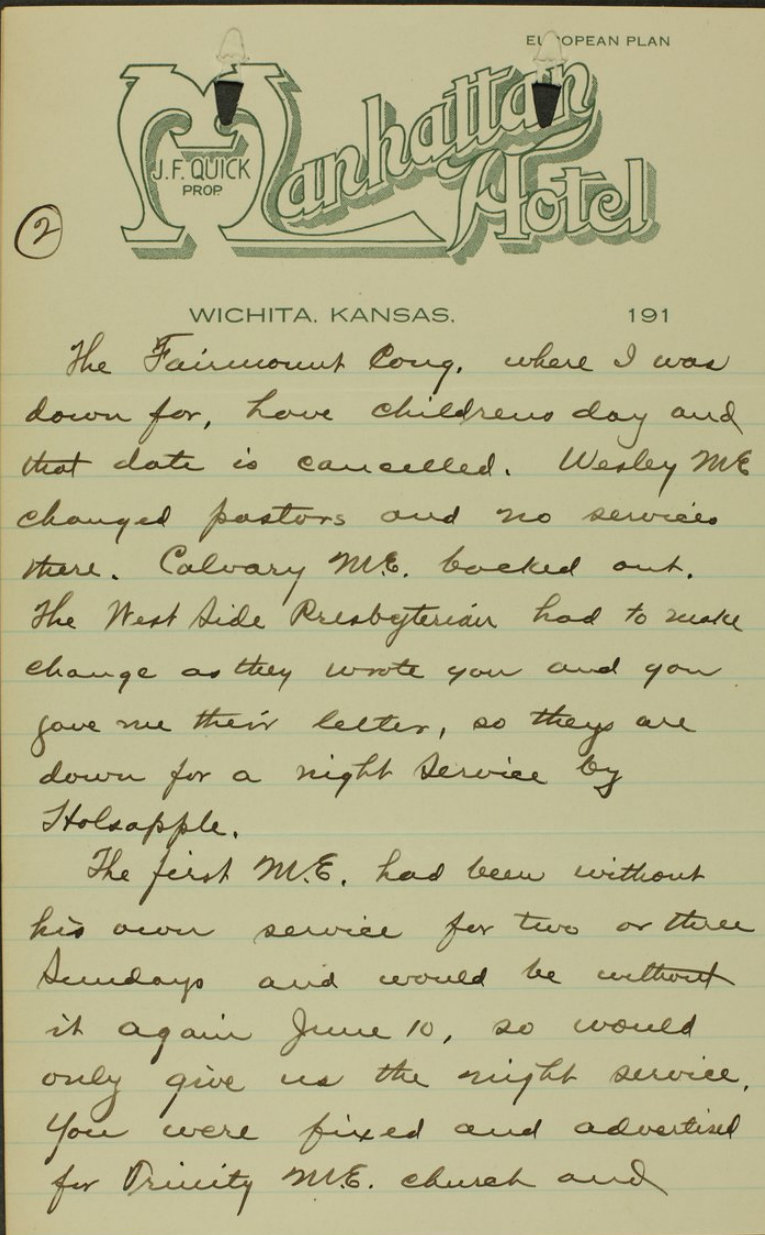 EUROPEAN PLAN
Manhattan
Hotel
J.F. QUICK
PROP.
2
WICHITA, KANSAS. 191
The Fairmount Cong. where I was
down for, have childrens day and
that date is cancelled. Wesley M.E
changed pastors and no services
there. Calvary M.E. backed out.
The West Side Presbyterian had to make
change as they wrote you and you
gave me their letter, so theys are
down for a night service by
Holsapple.
The first M.E. had been without
his own service for two or three
Sundays and would be without
it again June 10, so would
only give us the night service.
You were fixed and advertised
for Trinity M.E. church and